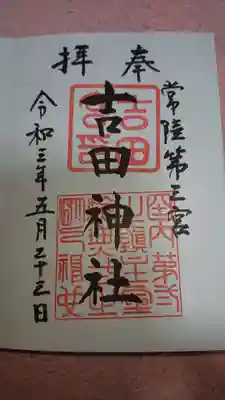 奉拝
常陸第三宮
吉田神社
令和三年五月二十三日